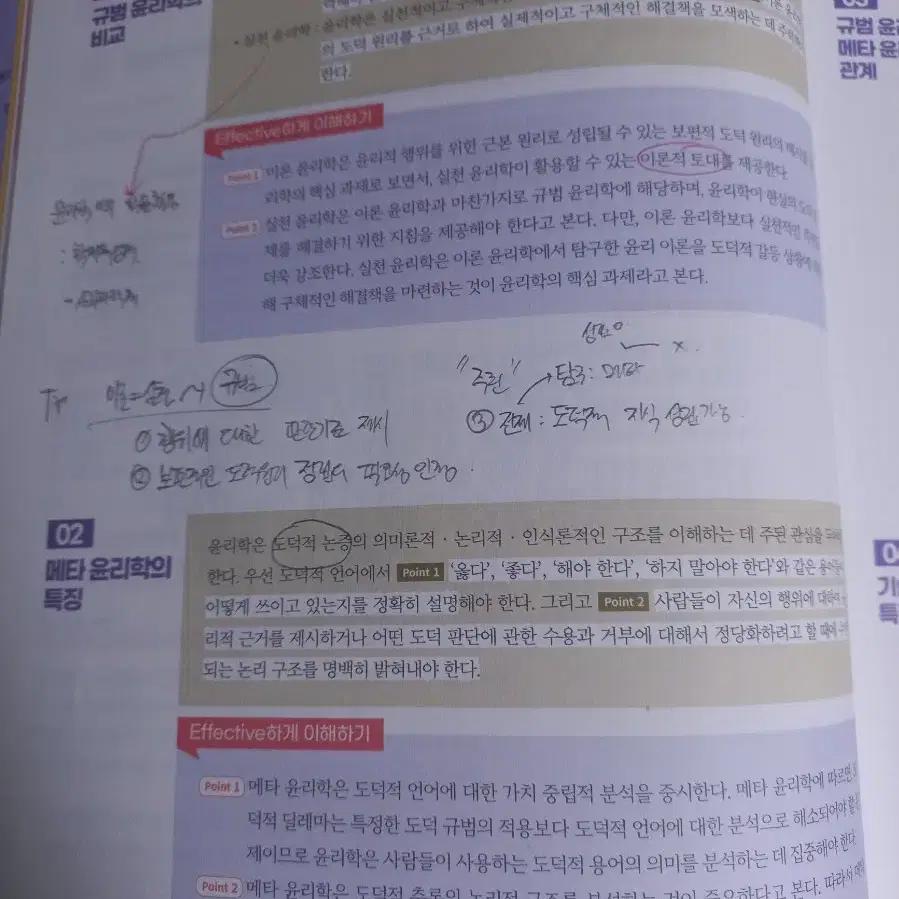 규범 윤리학의
비교
• 실천 윤리학 : 윤리학은 실천적이고
의 도덕 원리를 근거로 하여 실제적이고 구체적인 해결책을 모색하는 데 주력해야
한다.
03
규범 윤
메타 윤
관계
Effective하게 이해하기
Point 1 이론 윤리학은 윤리적 행위를 위한 근본 원리로 성립될 수 있는 보편적 도덕 원리의
리학의 핵심 과제로 보면서, 실천 윤리학이 활용할 수 있는 이론적 토대를 제공한다.
Point 2 실천 윤리학은 이론 윤리학과 마찬가지로 규범 윤리학에 해당하며, 윤리학이 현실의
제를 해결하기 위한 지침을 제공해야 한다고 본다. 다만, 이론 윤리학보다 실천적인
더욱 강조한다. 실천 윤리학은 이론 윤리학에서 탐구한 윤리 이론을 도덕적 갈등 상황에
해 구체적인 해결책을 마련하는 것이 윤리학의 핵심 과제라고 본다.
"주된" 탐구: 메타 x.
이론=실천 규범
① 행위에 대한 제시
② 보편적인 정립의 필요성 인정.
③ 전제: 도덕적 지식 성립가능.
02
메타 윤리학의
특징
윤리학은 도덕적 논증의 의미론적 · 논리적 · 인식론적인 구조를 이해하는 데 주된 관심을
한다. 우선 도덕적 언어에서 Point 1 ‘옳다’, ‘좋다’, ‘해야 한다’, ‘하지 말아야 한다’와 같은
어떻게 쓰이고 있는지를 정확히 설명해야 한다. 그리고 Point 2 사람들이 자신의 행위에 대하여
리적 근거를 제시하거나 어떤 도덕 판단에 관한 수용과 거부에 대해서 정당화하려고 할 때에
되는 논리 구조를 명백히 밝혀내야 한다.
Effective하게 이해하기
Point 1 메타 윤리학은 도덕적 언어에 대한 가치 중립적 분석을 중시한다. 메타 윤리학에 따르면
덕적 딜레마는 특정한 도덕 규범의 적용보다 도덕적 언어에 대한 분석으로 해소되어야 할
제이므로 윤리학은 사람들이 사용하는 도덕적 용어의 의미를 분석하는 데 집중해야 한다.
Point 2 메타 윤리학은 도덕적 추론의 논리적 구조를 분석하는 것이 중요하다고 본다. 따라서